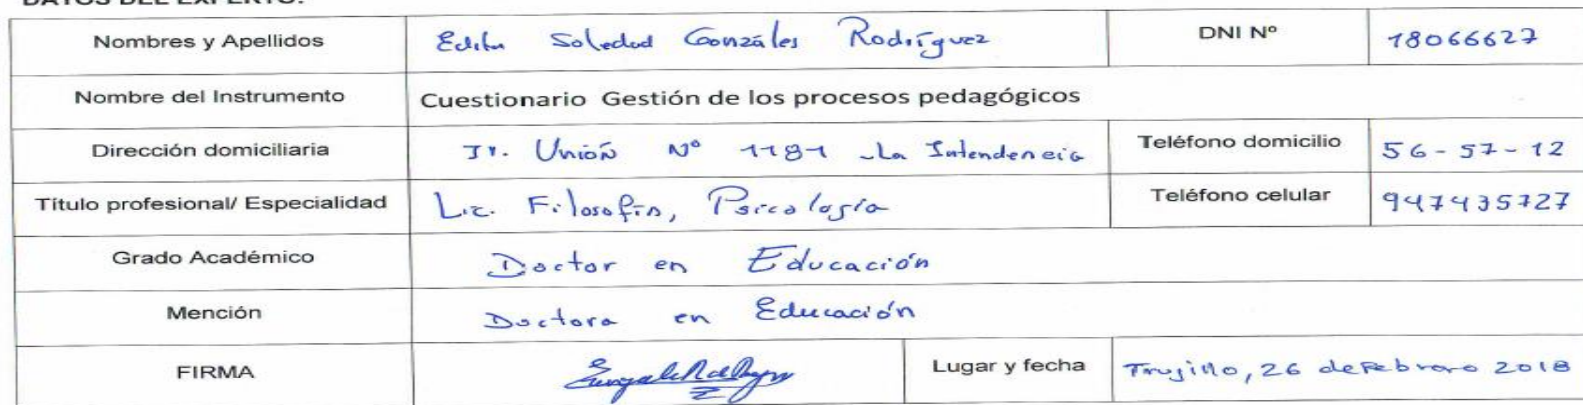 DATOS DEL EXPERTO:
Nombres y Apellidos Edita Soledad Gonzáles Rodríguez DNI Nº 18066627
Nombre del Instrumento Cuestionario Gestión de los procesos pedagógicos
Dirección domiciliaria Jr. Unión Nº 1181 La Intendencia Teléfono domicilio 56-57-12
Título profesional/ Especialidad Lic. Filosofía, Psicología Teléfono celular 947435727
Grado Académico Doctor en Educación
Mención Doctora en Educación
FIRMA Lugar y fecha Trujillo, 26 de Febrero 2018